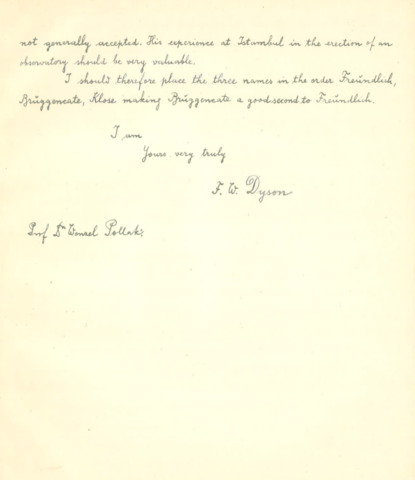 not generally accepted. His experience at Istambul in the erection of an
observatory should be very valuable.
I should therefore place the three names in the order Freündlich,
Brüggencate, Klose making Brüggencate a good second to Freündlich.
I am
Yours very truly
F. W. Dyson
Prof Dr Wenzel Pollak: